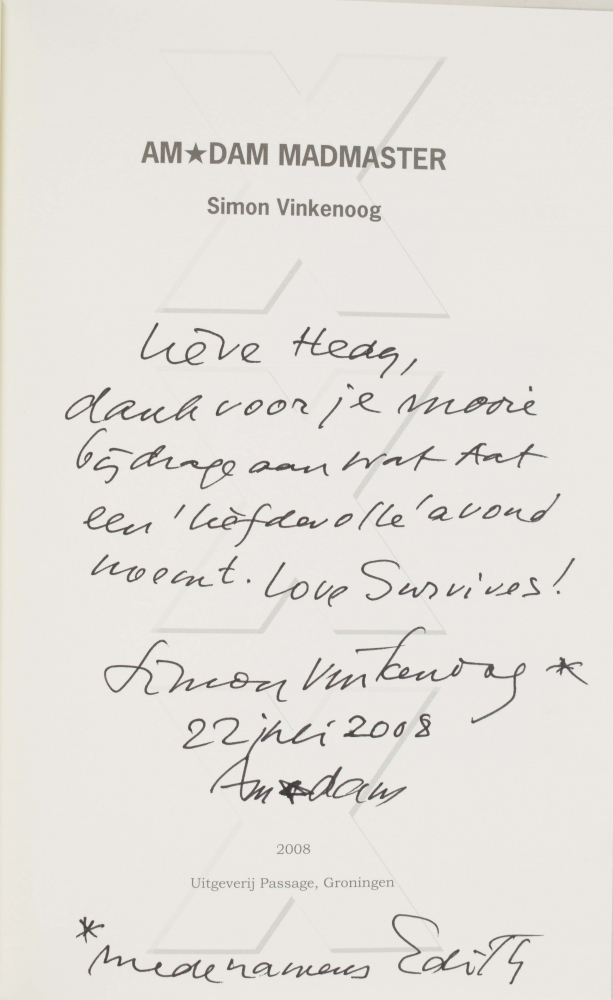 AM★DAM MADMASTER
Simon Vinkenoog
Lieve Hedy,
dank voor je mooie
bijdrage aan wat Aat
een 'liefdevolle' avond
noemt. Love Survives!
Simon Vinkenoog *
22 juli 2008
Am★dam
2008
Uitgeverij Passage, Groningen
* medenamens Edith